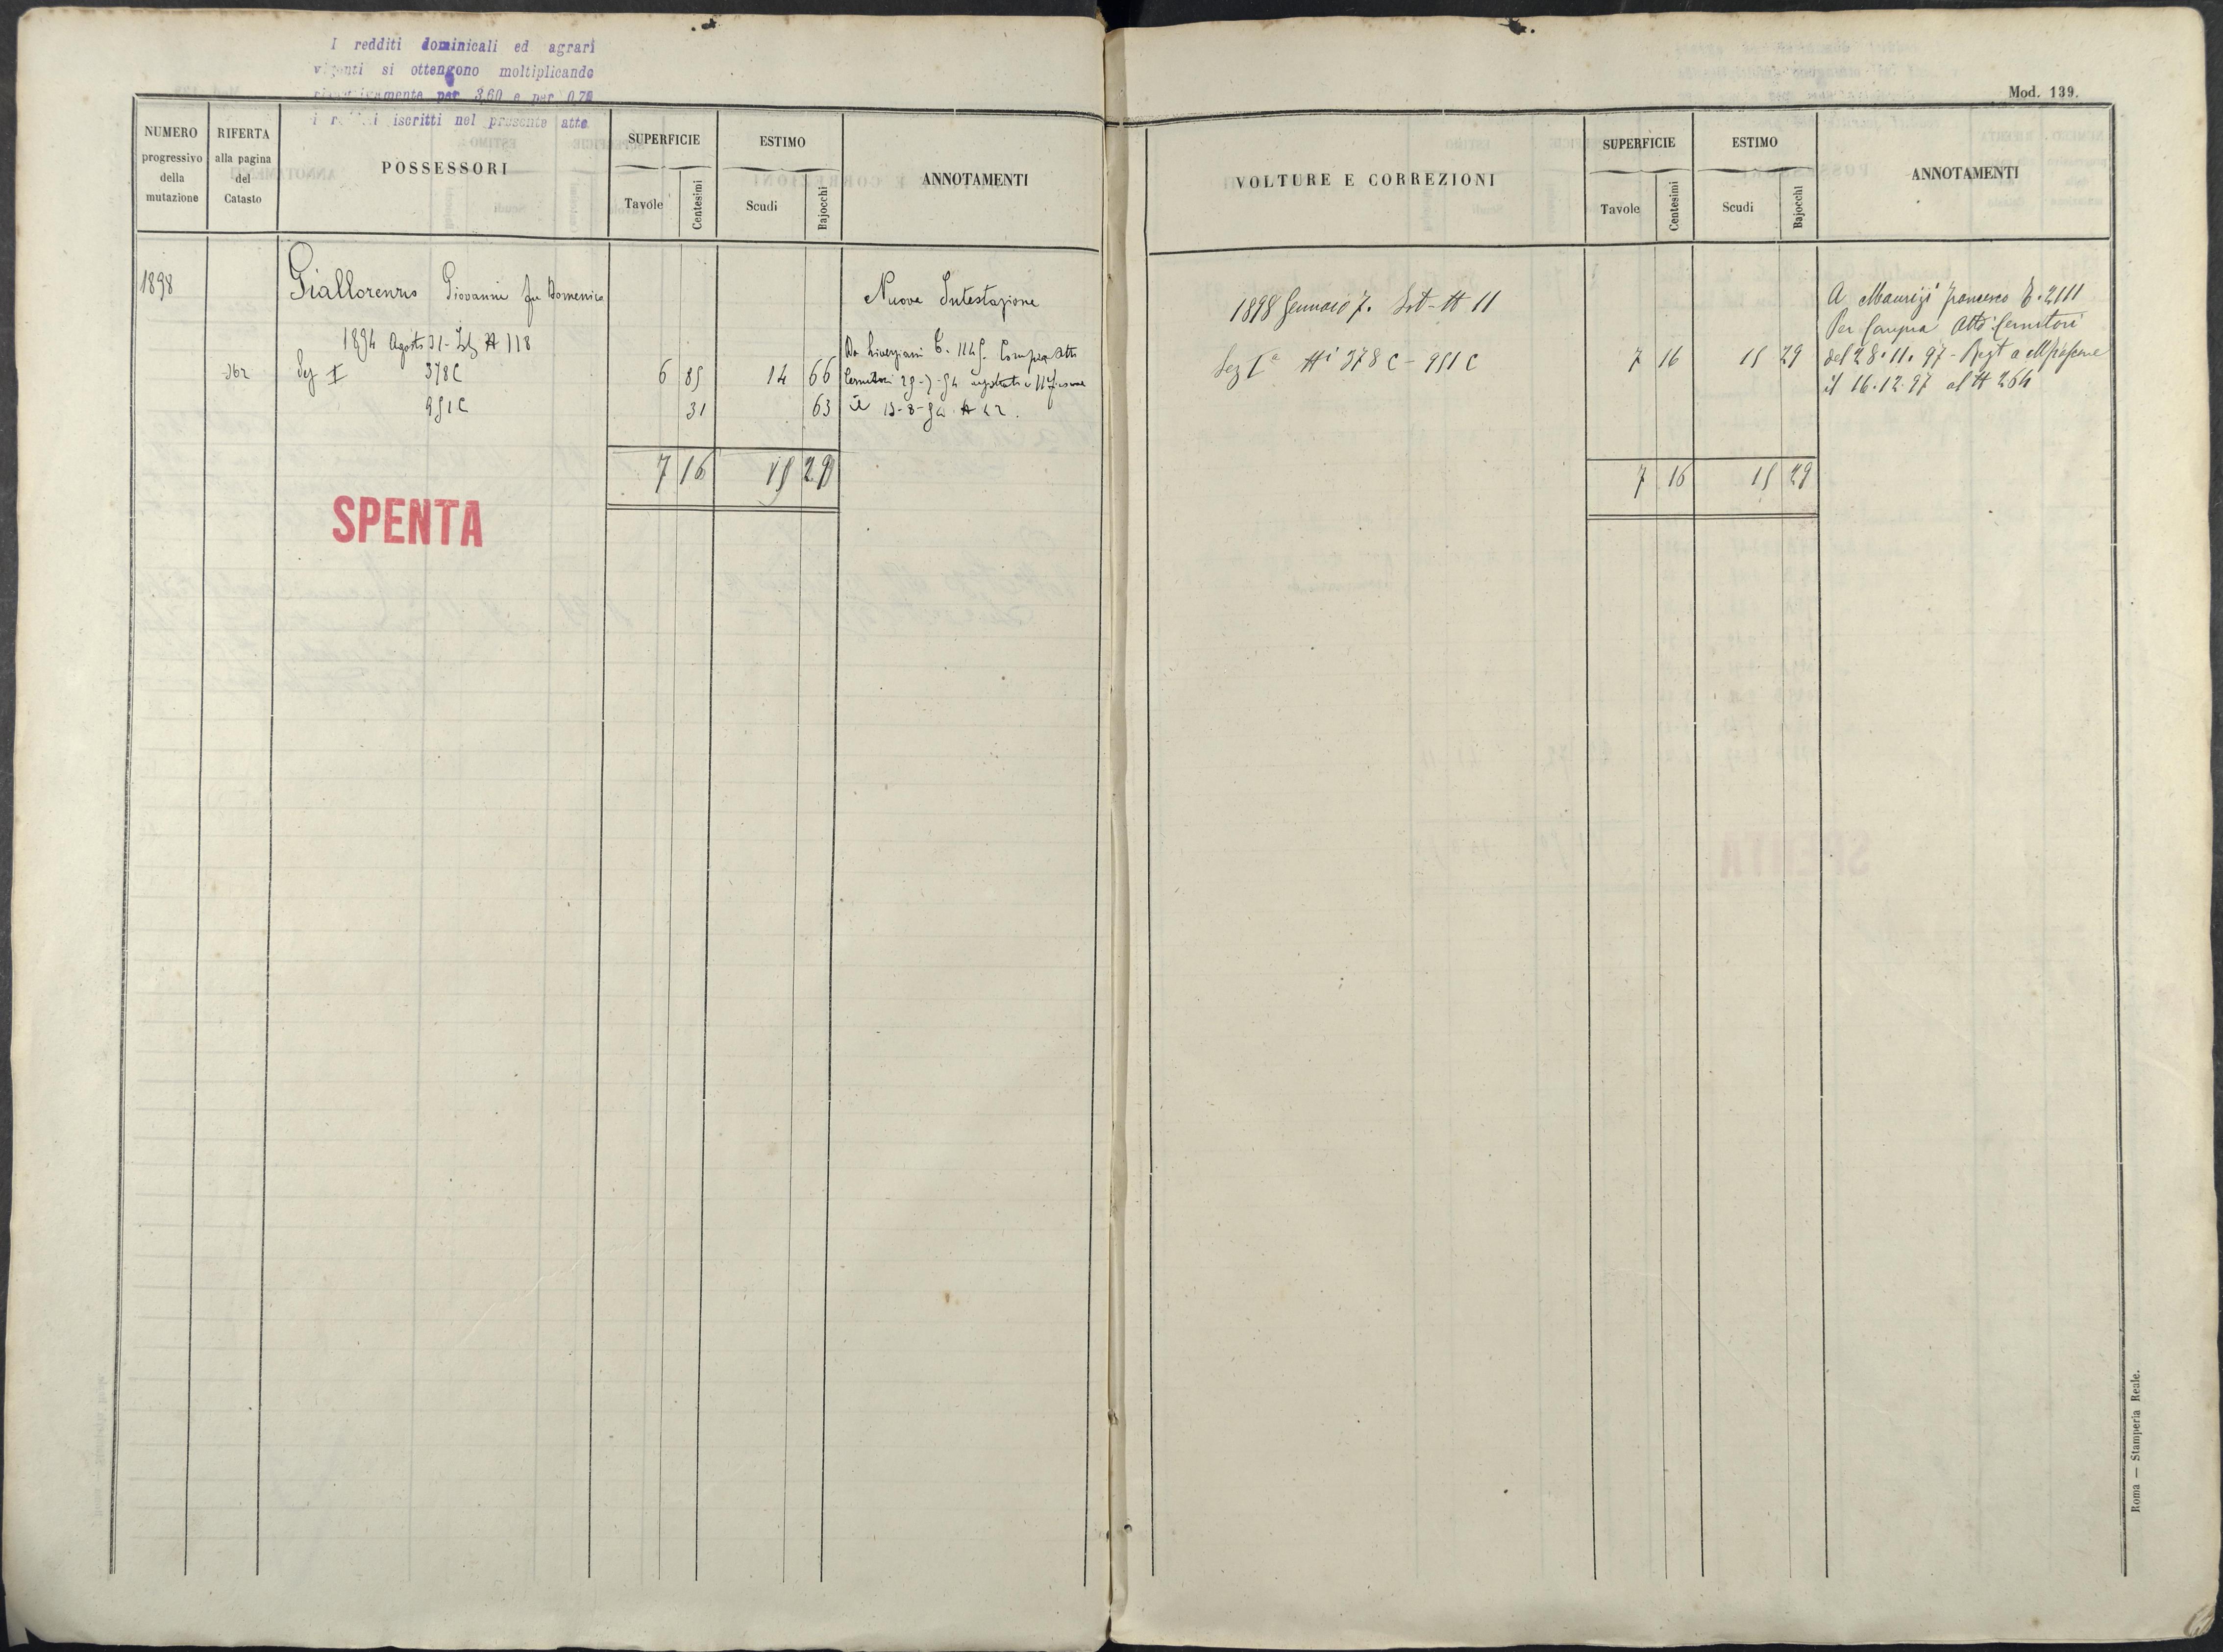 I redditi dominicali ed agrari
vigenti si ottengono moltiplicando
per 3,60 e per 0,70
i iscritti nel presente atto
Mod. 139.
NUMERO progressivo della mutazione
RIFERTA alla pagina del Catasto
POSSESSORI
SUPERFICIE
Tavole Centesimi
ESTIMO
Scudi Bajocchi
ANNOTAMENTI
1898 Giallorenzo Giovanni fu Domenico Nuova Intestazione
1894 Agosto 31 - # 118
Da C. Compra Atto
362 Sez I 378 C 6 85 14 66
951 C 31 63
7 16 15 29
SPENTA
VOLTURE E CORREZIONI
SUPERFICIE
Tavole Centesimi
ESTIMO
Scudi Bajocchi
ANNOTAMENTI
1898 Gennaio 7. # 11
Sez Iª #i 378 C - 951 C 7 16 15 29
A Maurizi Francesco C. 2111
Per Compra Atto Cernitori
del 28.11.97 - Regt a
il 16.12.97 al # 264
7 16 15 29
Roma — Stamperia Reale.